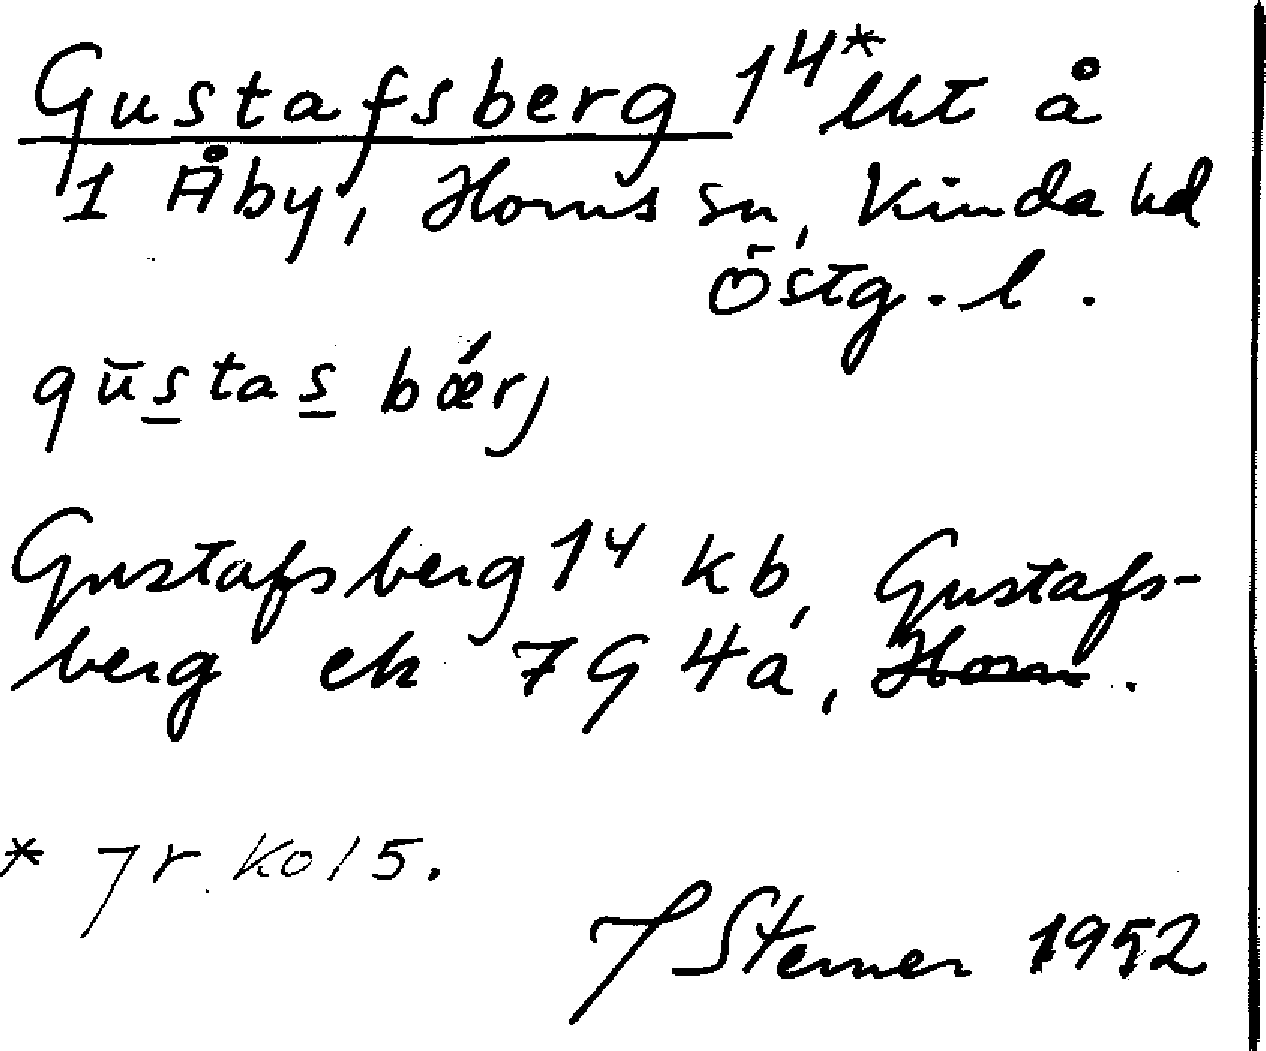 Gustafsberg 14* lht å
1 Åby, Horns sn, Kinda hd
Östg. l.
gūstas bǽrj
Gustafsberg 14 kb, Gustafs-
berg ek 7G4a, Horn.
* Jr kol 5.
J Sterner 1952